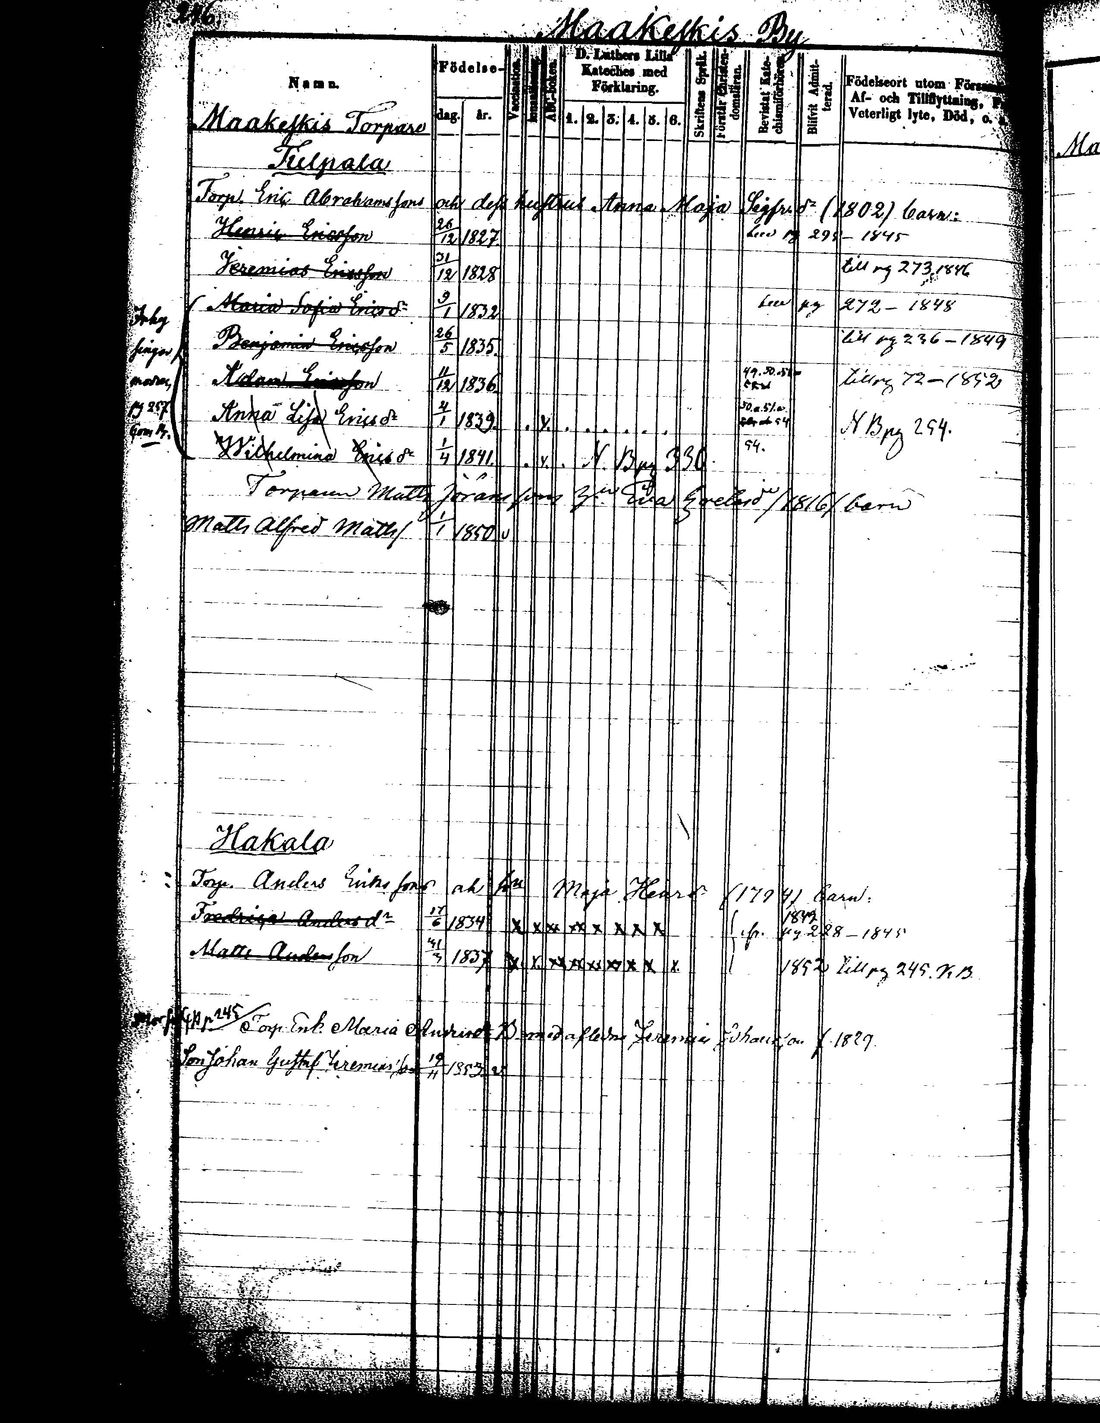 Maakeskis By
Namn.
Födelse-
dag.
år.
Vaccination.
ABC-boken.
D. Luthers Lilla Kateches med Förklaring.
1. 2. 3. 4. 5. 6.
Skriftens Språk.
Förstår Christendomsläran.
Bevistat Katechismiförhören.
Blifvit Admitterad.
Födelseort utom Försam
Af- och Tillflyttning, F
Veterligt lyte, Död, o. s.
Maakeskis Torpare
Ma
Tulpala
Torp. Eric Abrahamssons och dess hustrus Anna Maja Sigfrsdr (1802) barn:
Henric Ericsson 26/12 1827 pg 295 – 1845
Jeremias Ericsson 31/12 1828 till pg 273 1846
Maria Sofia Ericsdr 9/1 1832 pg 272 – 1848
Benjamin Ericsson 26/5 1835 till pg 236 – 1849
Adam Ericsson 11/12 1836 49.50.51 till pg 72 – 1852
Anna Lisa Ericsdr 4/1 1839 N B pg 294.
Wilhelmina Ericsdr 1/4 1841 N. B pg 330 54.
pg 257
Torparen Matts Göranssons Eva /1816/ barn
Matts Alfred Matts/ 1/1 1850 v
Hakala
Torp. Anders Erikssons och Maja Henrdr (1794) barn:
Fredrica Andersdr 17/6 1834 x x x x x x x x 1842 pg 228 – 1845
Matts Andersson 31/3 1837 x x x x x x x x x 1852 till pg 245. N B
p 245 Torp. Enk. Maria med afledne Jeremias Johansson f. 1829.
Son Johan Gustaf Jeremias 19/11 1853 v